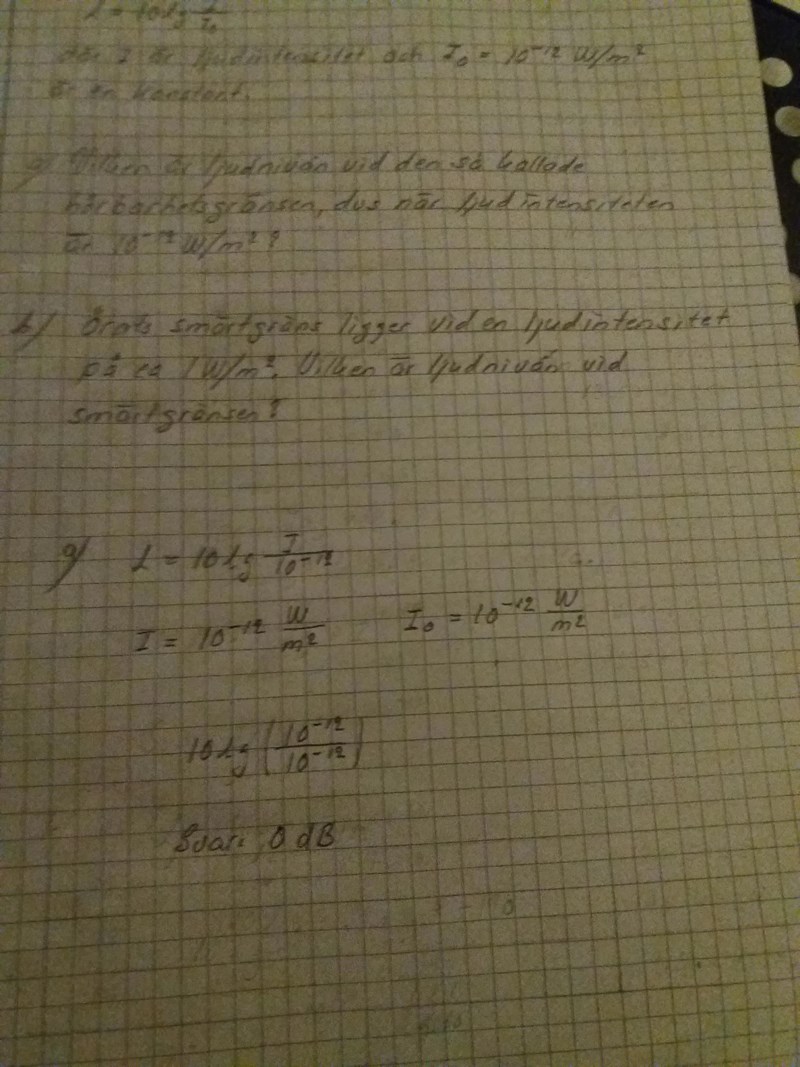 L = 10 lg I/I₀
där I är ljudintensitet och I₀ = 10⁻¹² W/m²
är en konstant.
a) Vilken är ljudnivån vid den så kallade
hörbarhetsgränsen, dvs när ljudintensiteten
är 10⁻¹² W/m²?
b) Örats smärtgräns ligger vid en ljudintensitet
på ca 1 W/m². Vilken är ljudnivån vid
smärtgränsen?
a) L = 10 lg I/10⁻¹²
I = 10⁻¹² W/m² I₀ = 10⁻¹² W/m²
10 lg (10⁻¹²/10⁻¹²)
Svar: 0 dB